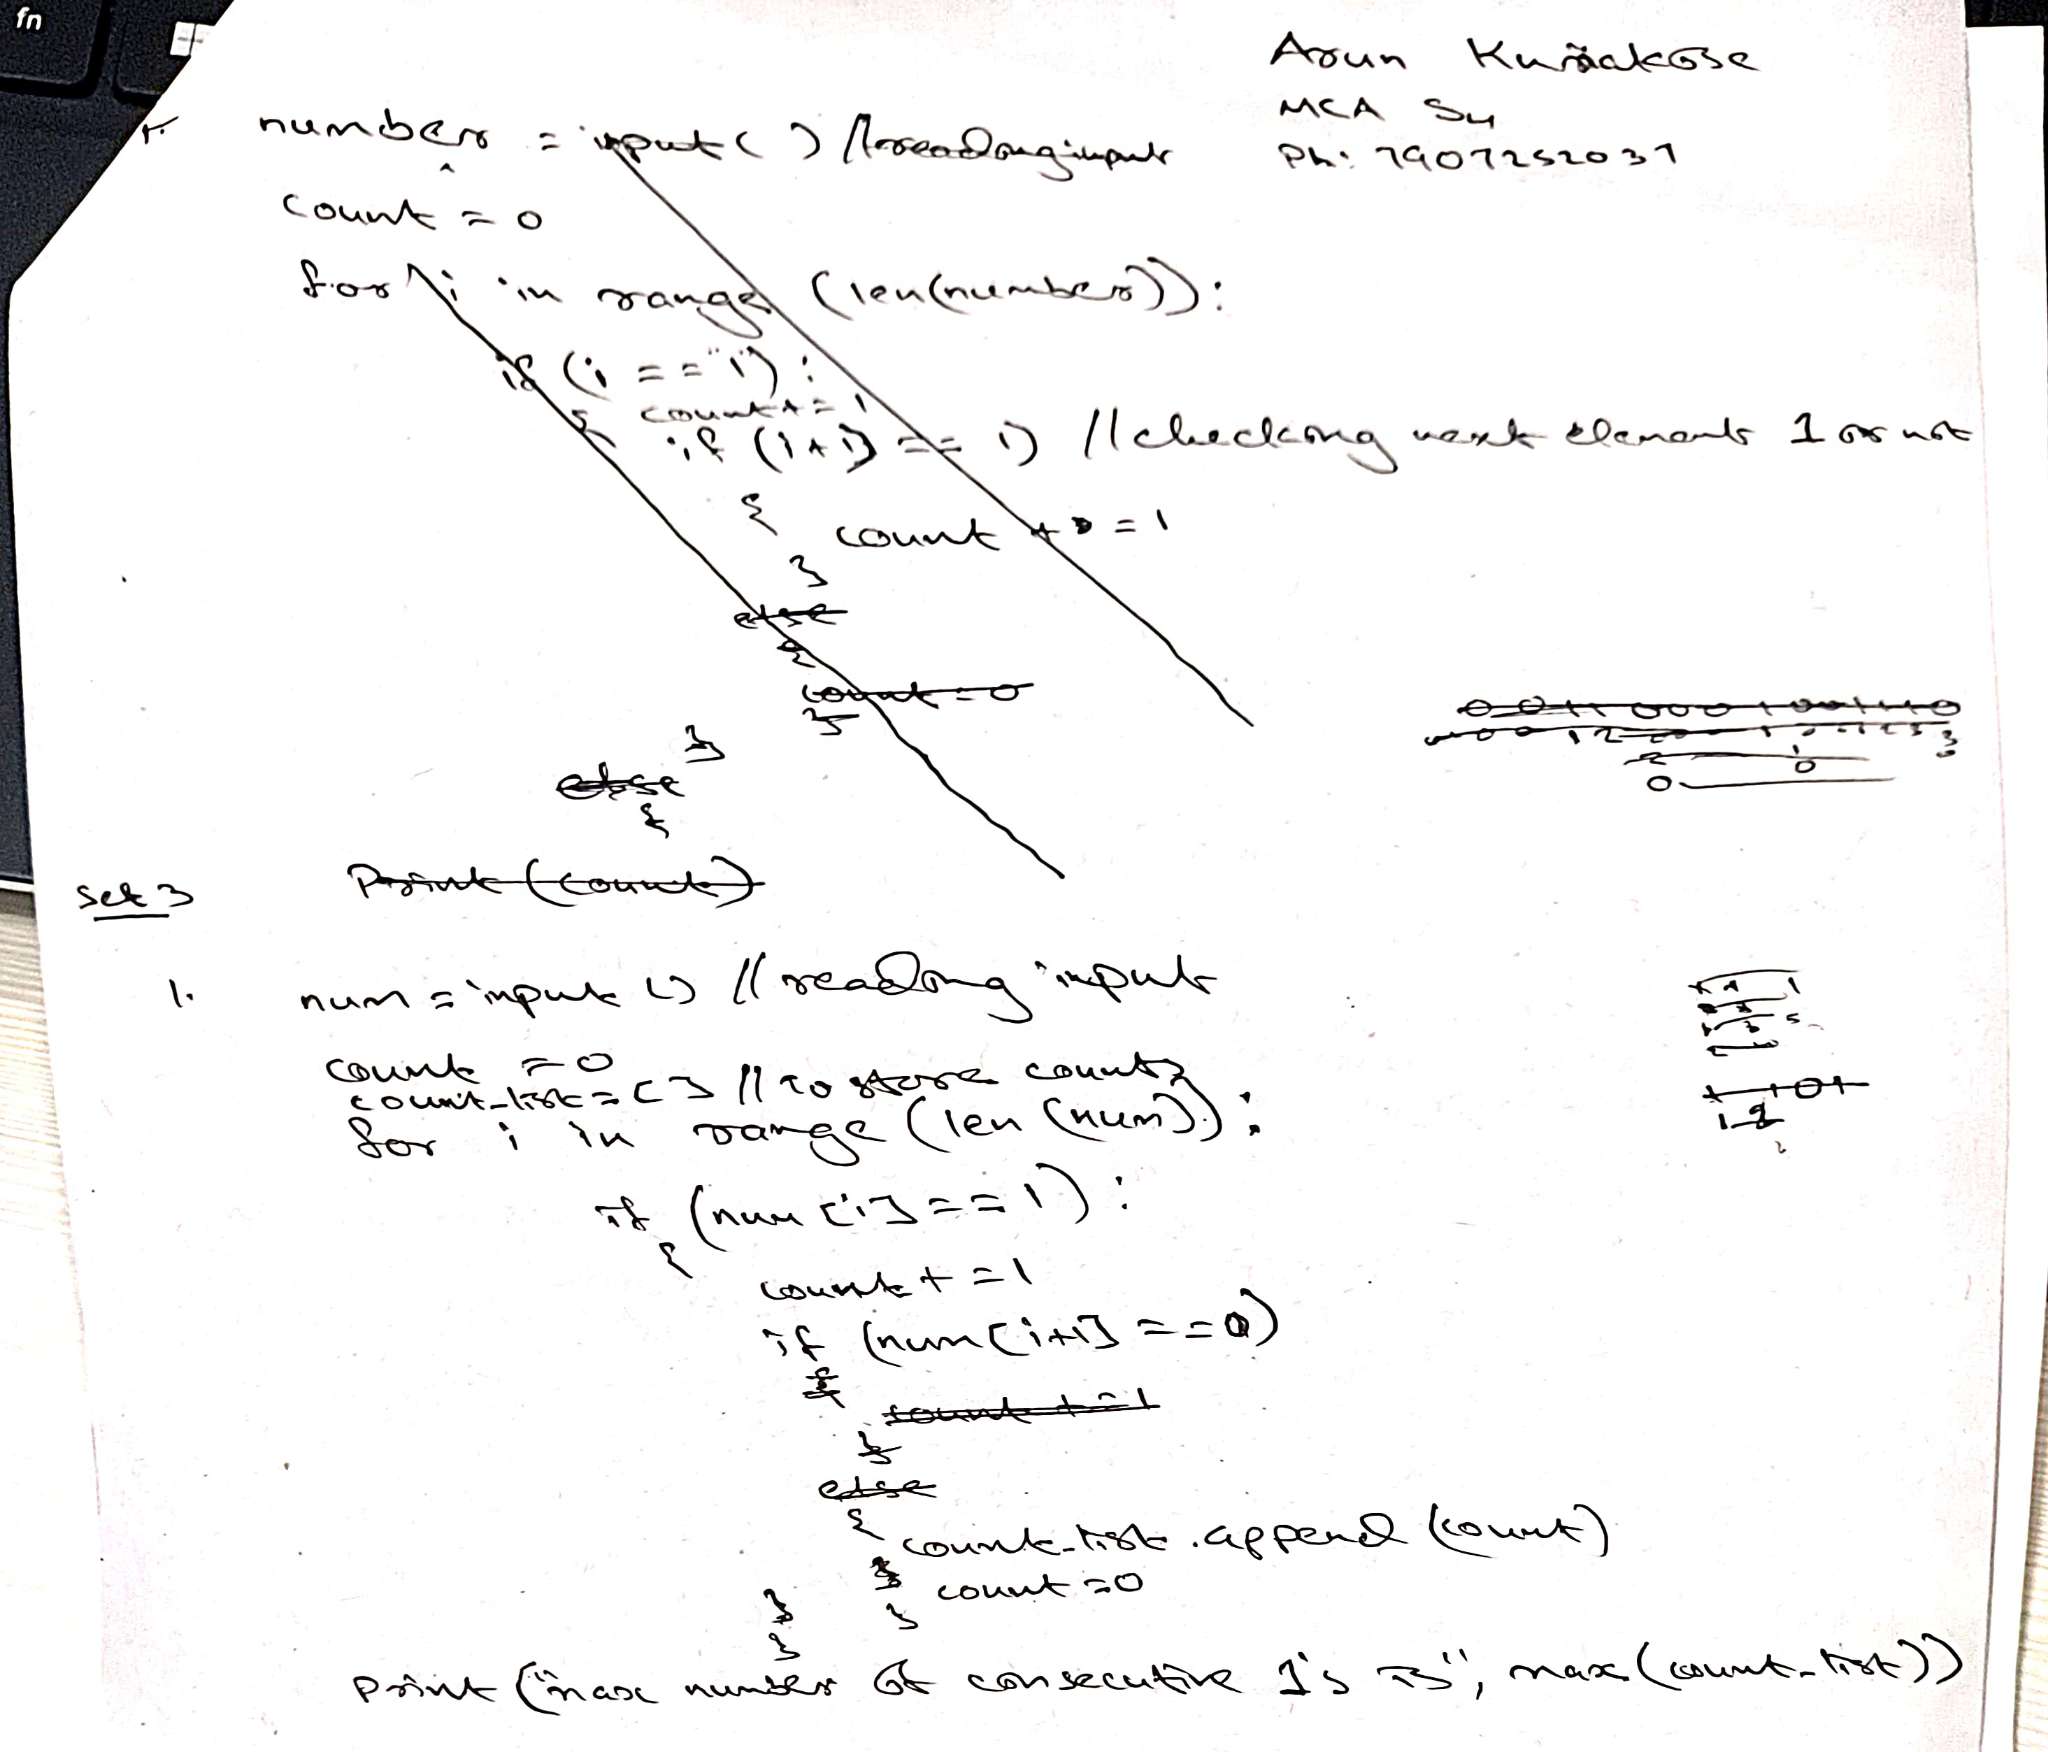 fn
Arun Kuriakose
MCA S4
Ph: 7907252037
1. number = input ( ) // reading input
count = 0
for i in range (len(number)):
if (i == "1"):
{ count += 1
if (i+1) == 1) // checking next elements 1 or not
{
count + = 1
}
else
{
count = 0
}
}
else
{
Print (count)
Set 3
1. num = input () // reading input
count = 0
count_list = [] // to store counts
for i in range (len (num)):
if (num [i] == 1):
{
count + = 1
if (num [i+1] == 0)
{
count + = 1
}
else
{
count_list . append (count)
} count = 0
}
}
}
print ("max number of consecutive 1's is", max (count_list))